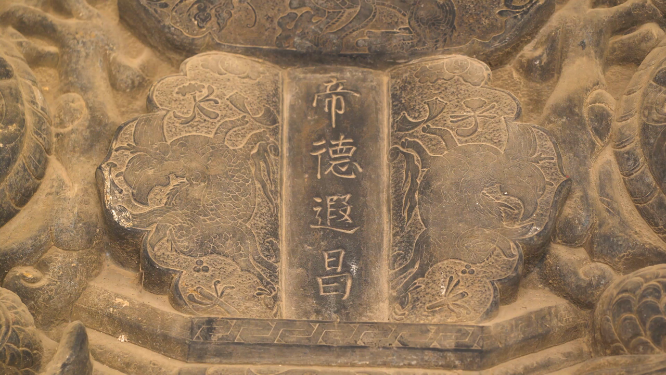 帝德遐昌